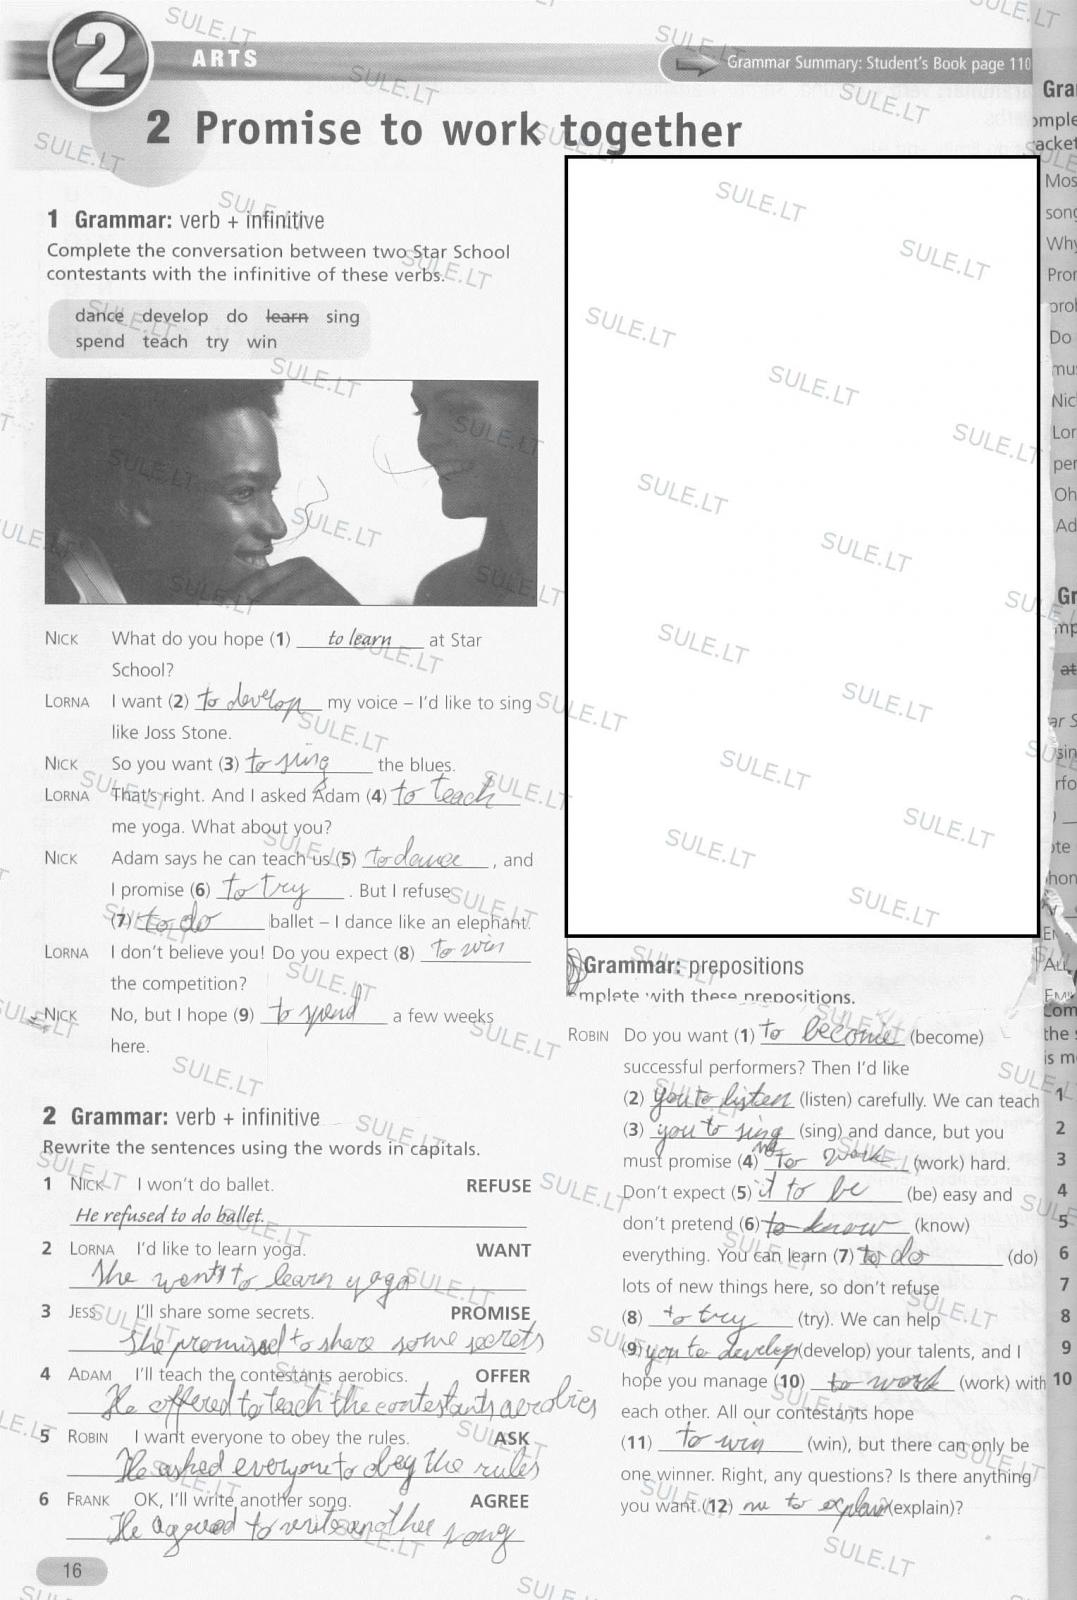 2 ARTS
Grammar Summary: Student's Book page 110
2 Promise to work together
1 Grammar: verb + infinitive
Complete the conversation between two Star School
contestants with the infinitive of these verbs.
dance develop do learn sing
spend teach try win
NICK What do you hope (1) to learn at Star
School?
LORNA I want (2) to develop my voice – I'd like to sing
like Joss Stone.
NICK So you want (3) to sing the blues.
LORNA That's right. And I asked Adam (4) to teach
me yoga. What about you?
NICK Adam says he can teach us (5) to dance, and
I promise (6) to try. But I refuse
(7) to do ballet – I dance like an elephant!
LORNA I don't believe you! Do you expect (8) to win
the competition?
NICK No, but I hope (9) to spend a few weeks
here.
2 Grammar: verb + infinitive
Rewrite the sentences using the words in capitals.
1 NICK I won't do ballet. REFUSE
He refused to do ballet.
2 LORNA I'd like to learn yoga. WANT
She wants to learn yoga
3 JESS I'll share some secrets. PROMISE
She promised to share some secrets
4 ADAM I'll teach the contestants aerobics. OFFER
He offered to teach the contestants aerobics
5 ROBIN I want everyone to obey the rules. ASK
He asked everyone to obey the rules
6 FRANK OK, I'll write another song. AGREE
He agreed to write another song
16
Grammar: prepositions
mplete with these prepositions.
ROBIN Do you want (1) to become (become)
successful performers? Then I'd like
(2) you to listen (listen) carefully. We can teach
(3) you to sing (sing) and dance, but you
must promise (4) me to work (work) hard.
Don't expect (5) it to be (be) easy and
don't pretend (6) to know (know)
everything. You can learn (7) to do (do)
lots of new things here, so don't refuse
(8) to try (try). We can help
(9) you to develop (develop) your talents, and I
hope you manage (10) to work (work) with
each other. All our contestants hope
(11) to win (win), but there can only be
one winner. Right, any questions? Is there anything
you want (12) me to explain (explain)?
1
2
3
4
5
6
7
8
9
10
SULE.LT